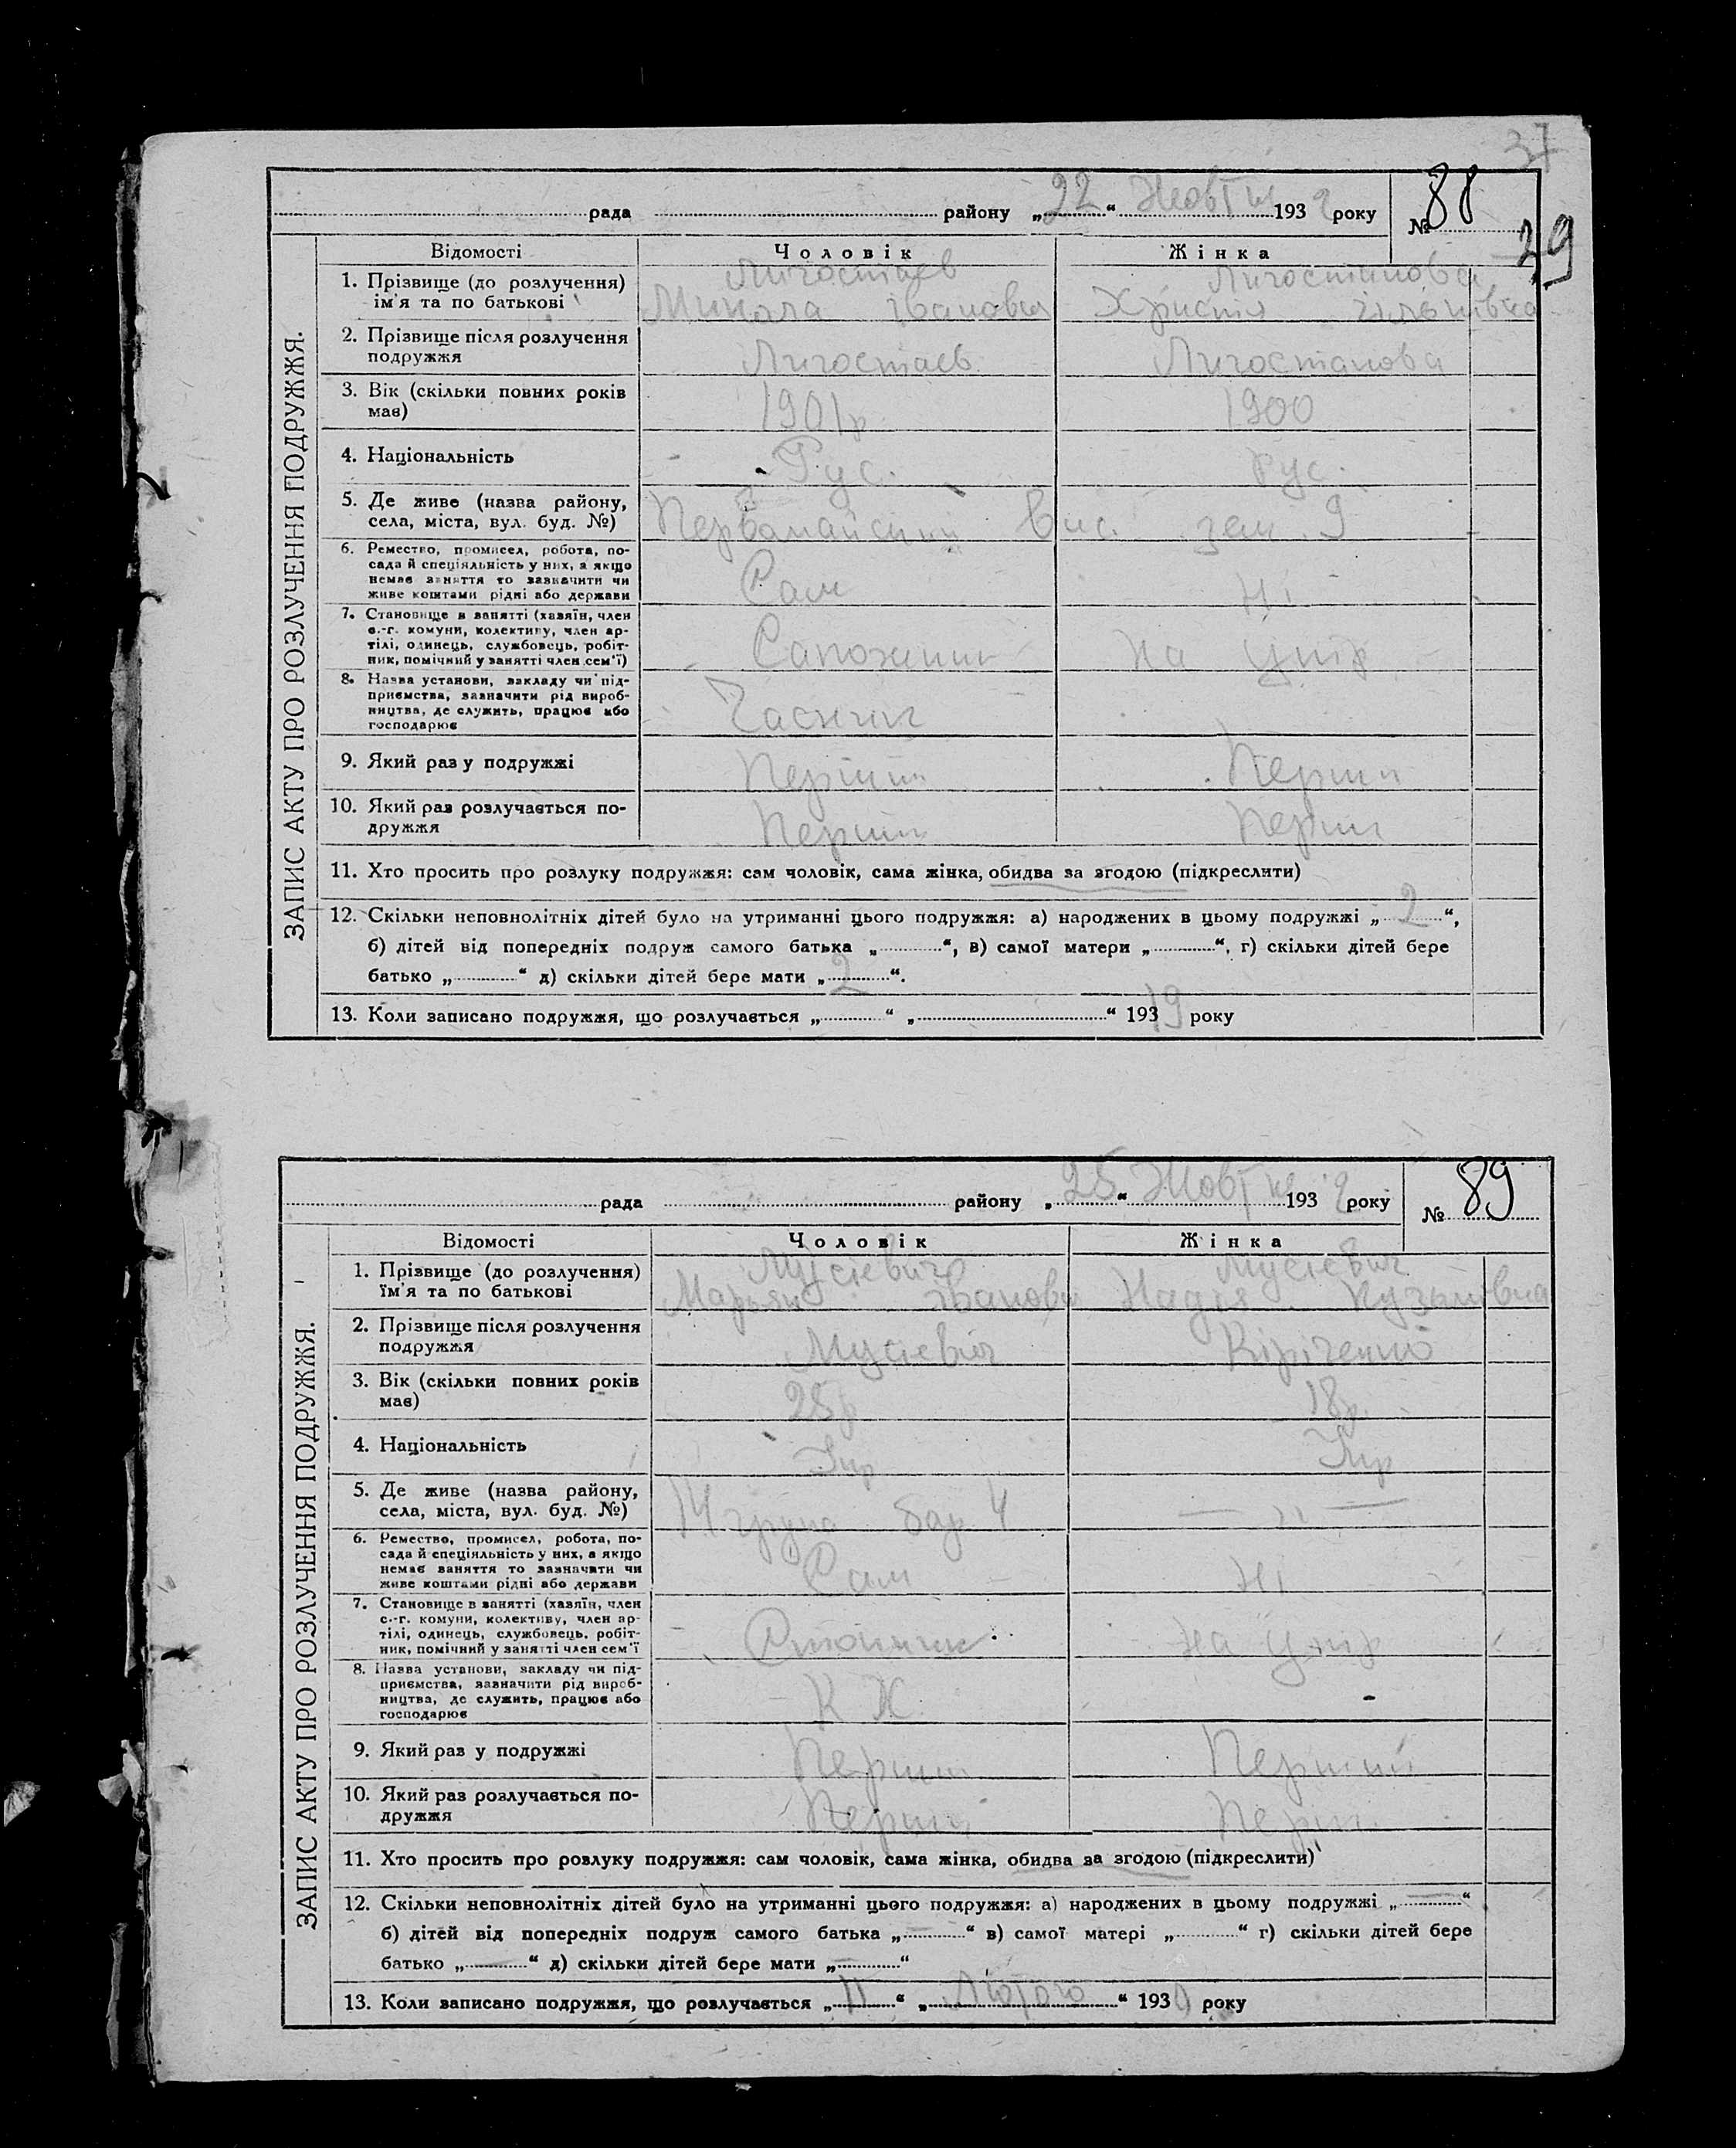 37
рада района „22“ Жовтня 193 року № 88
29
ЗАПИС АКТУ ПРО РОЗЛУЧЕННЯ ПОДРУЖЖЯ.
Відомості Чоловік Жінка
1. Прізвище (до розлучення)
ім'я та по батькові
Микола Іванович Христя
2. Прізвище після розлучення
подружжя
3. Вік (скільки повних років
має) 1901р 1900
4. Національність Рус. Рус.
5. Де живе (назва району,
села, міста, вул. буд. №) Первомайський Вис. зем. 9
6. Ремество, промисел, робота, по-
сада й спеціяльність у них, а якщо
немає заняття то зазначити чи
живе коштами рідні або держави Сам Ні
7. Становище в занятті (хазяїн, член
с.-г. комуни, колективу, член ар-
тілі, одинець, службовець, робіт-
ник, помічний у занятті член сем'ї) Сапожник На утр
8. Назва установи, закладу чи під-
приємства, зазначити рід вироб-
ництва, де служить, працює або
господарює
9. Який раз у подружжі Перший Перши
10. Який раз розлучається по-
дружжя Перши Перши
11. Хто просить про розлуку подружжя: сам чоловік, сама жінка, обидва за згодою (підкреслити)
12. Скільки неповнолітніх дітей було на утриманні цього подружжя: а) народжених в цьому подружжі „2“,
б) дітей від попередніх подруж самого батька „ “, в) самої матери „ “, г) скільки дітей бере
батько „ “ д) скільки дітей бере мати „2“.
13. Коли записано подружжя, що розлучається „ “ „ “ 193 19 року
рада району „25“ Жовтня 193 2 року № 89
ЗАПИС АКТУ ПРО РОЗЛУЧЕННЯ ПОДРУЖЖЯ.
Відомості Чоловік Жінка
1. Прізвище (до розлучення)
їм'я та по батькові
Мусієвич Мусієвич
Марьян Іванович Надія Кузьмівна
2. Прізвище після розлучення
подружжя Мусієвич Кіріченко
3. Вік (скільки повних років
має) 18р.
4. Національність Укр Укр
5. Де живе (назва району,
села, міста, вул. буд. №) 14 група бар 4 — „ —
6. Ремество, промисел, робота, по-
сада й спеціяльність у них, а якщо
немає заняття то зазначати чи
живе коштами рідні або держави Сам Ні
7. Становище в занятті (хазяїн, член
с.-г. комуни, колективу, член ар-
тілі, одинець, службовець, робіт-
ник, помічний у занятті член сем'ї На утр
8. Назва установи, закладу чи під-
приємства, зазначити рід вироб-
ництва, де служить, працює або
господарює К Х
9. Який раз у подружжі Перший Перший
10. Який раз розлучається по-
дружжя Перши Перш
11. Хто просить про розлуку подружжя: сам чоловік, сама жінка, обидва за згодою (підкреслити)
12. Скільки неповнолітніх дітей було на утриманні цього подружжя: а) народжених в цьому подружжі „ “
б) дітей від попередніх подруж самого батька „ “ в) самої матері „ “ г) скільки дітей бере
батько „ “ д) скільки дітей бере мати „ “
13. Коли записано подружжя, що розлучається „11“ „Лютого“ 193 року